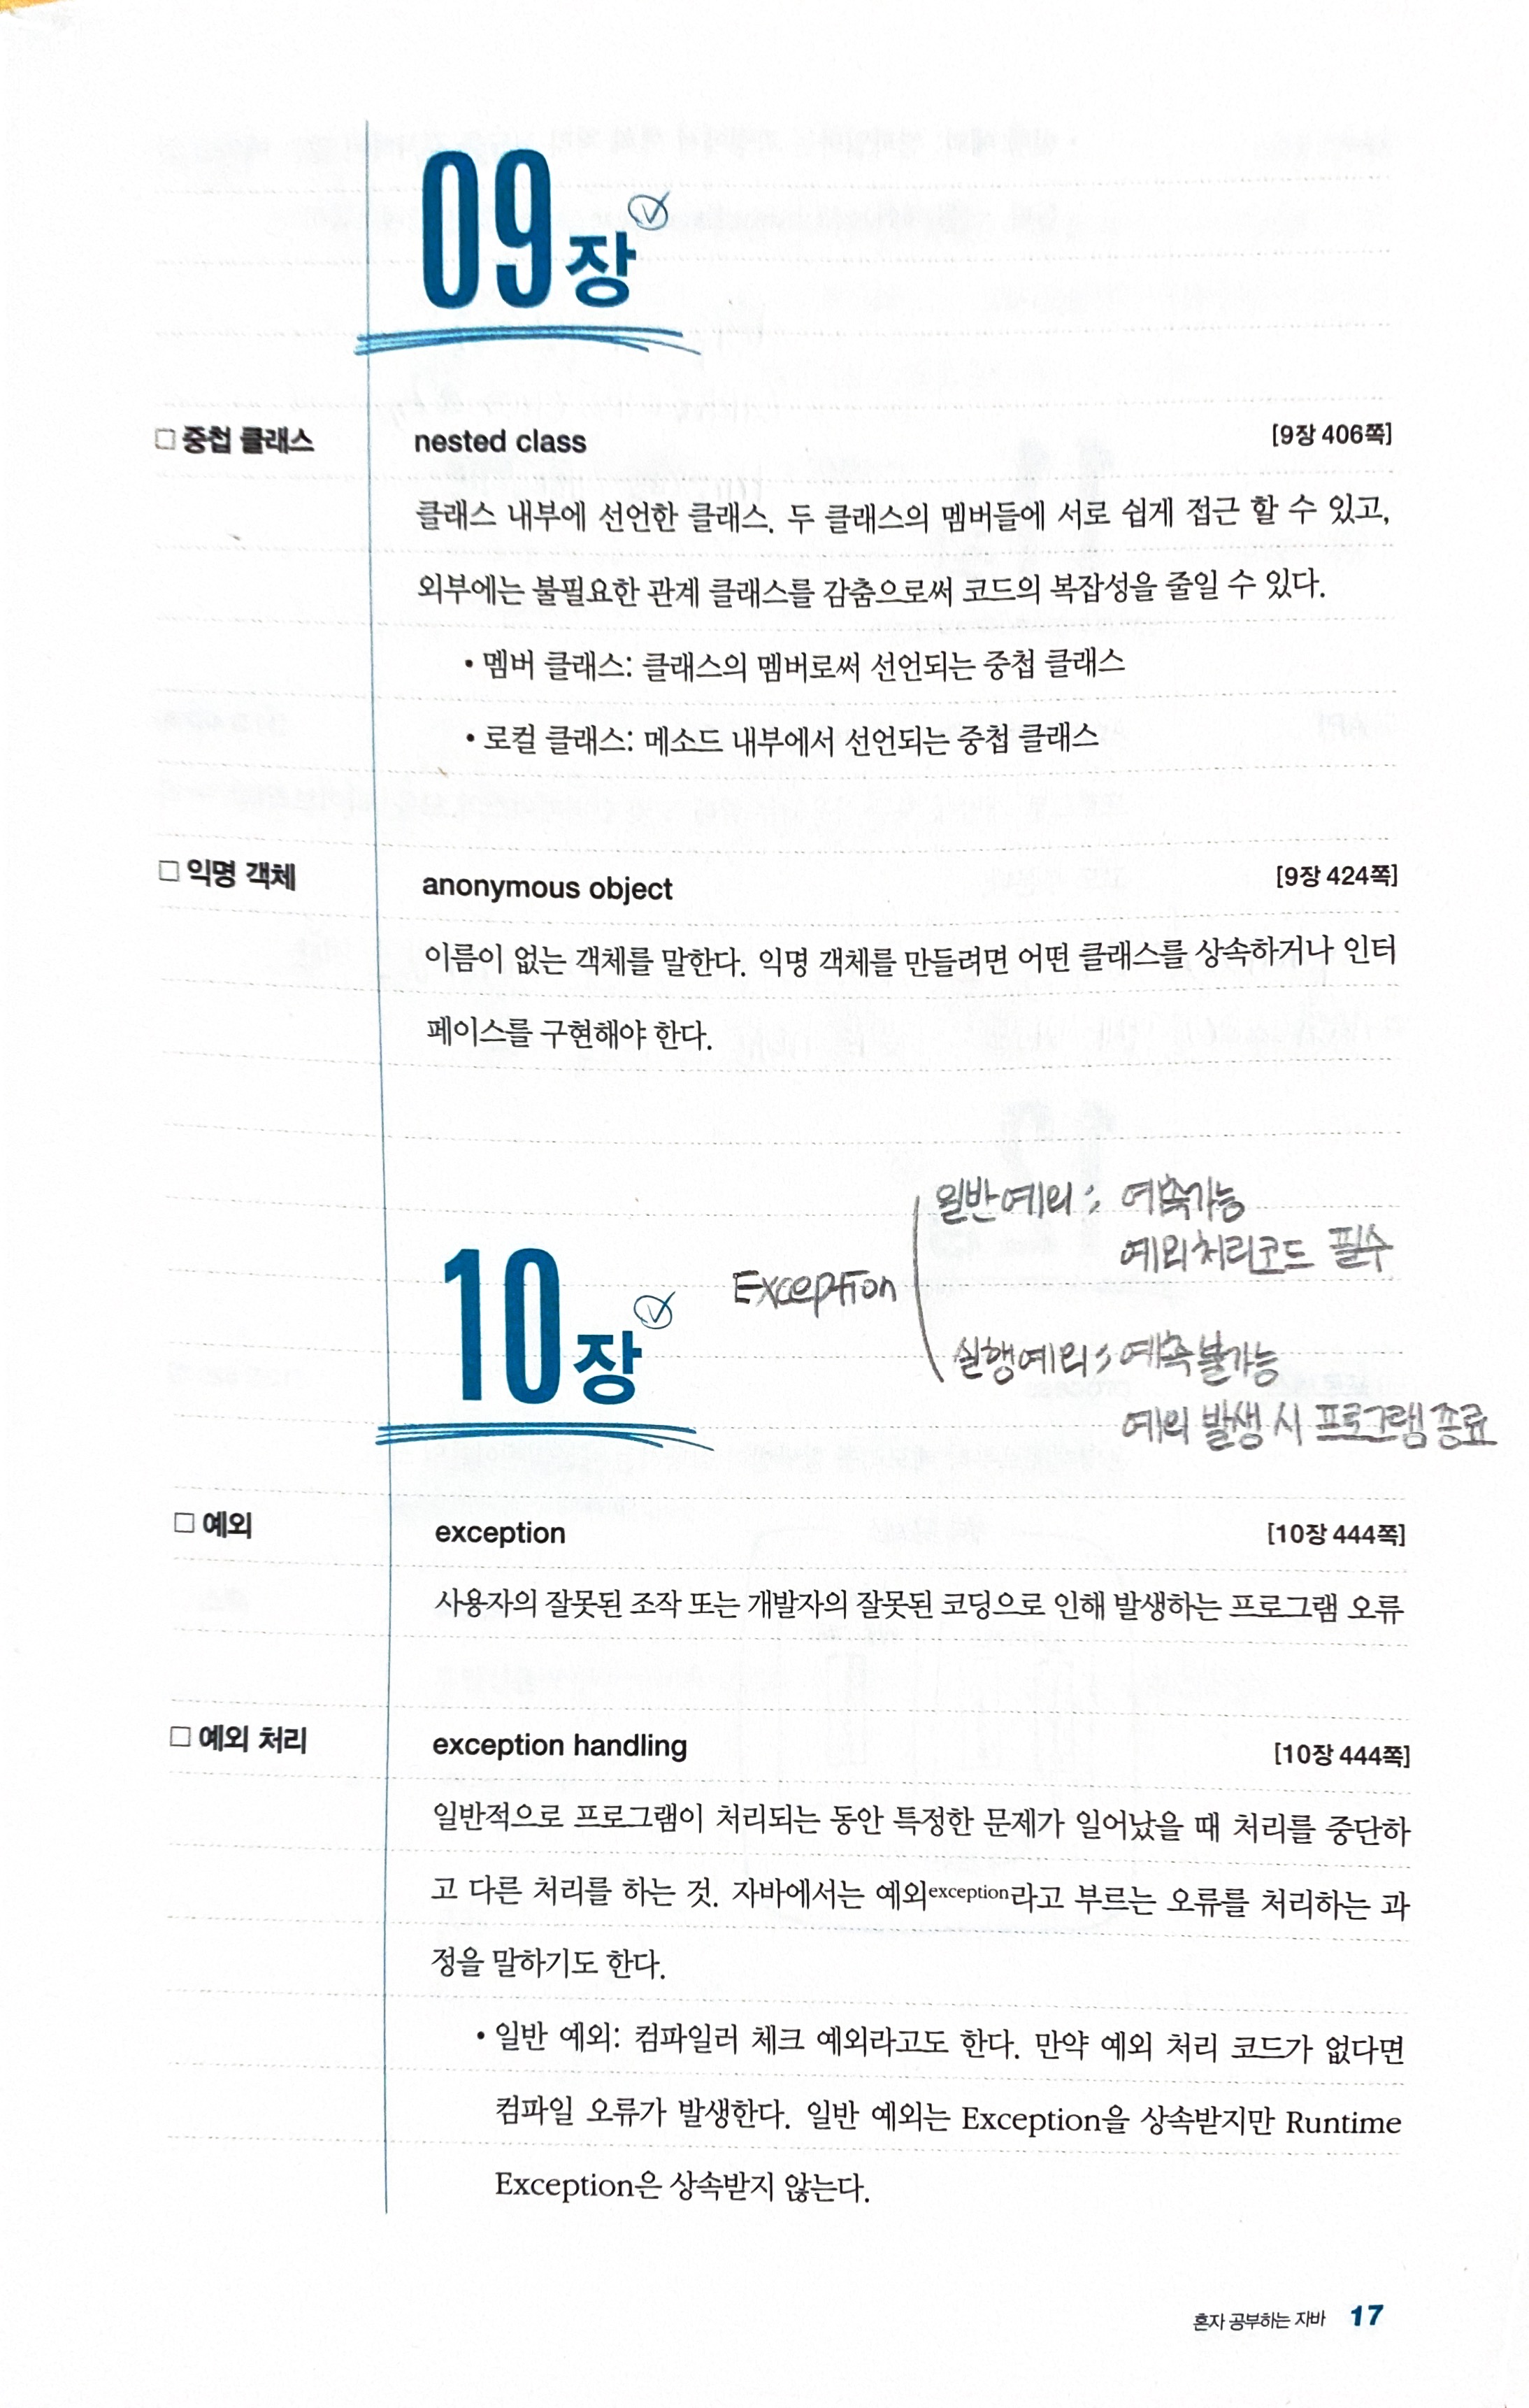 09장
□ 중첩 클래스
nested class
[9장 406쪽]
클래스 내부에 선언한 클래스. 두 클래스의 멤버들에 서로 쉽게 접근 할 수 있고,
외부에는 불필요한 관계 클래스를 감춤으로써 코드의 복잡성을 줄일 수 있다.
• 멤버 클래스: 클래스의 멤버로써 선언되는 중첩 클래스
• 로컬 클래스: 메소드 내부에서 선언되는 중첩 클래스
□ 익명 객체
anonymous object
[9장 424쪽]
이름이 없는 객체를 말한다. 익명 객체를 만들려면 어떤 클래스를 상속하거나 인터
페이스를 구현해야 한다.
10장
Exception
일반예외 : 예측가능
예외처리코드 필수
실행예외 : 예측불가능
예외 발생 시 프로그램 종료
□ 예외
exception
[10장 444쪽]
사용자의 잘못된 조작 또는 개발자의 잘못된 코딩으로 인해 발생하는 프로그램 오류
□ 예외 처리
exception handling
[10장 444쪽]
일반적으로 프로그램이 처리되는 동안 특정한 문제가 일어났을 때 처리를 중단하
고 다른 처리를 하는 것. 자바에서는 예외exception라고 부르는 오류를 처리하는 과
정을 말하기도 한다.
• 일반 예외: 컴파일러 체크 예외라고도 한다. 만약 예외 처리 코드가 없다면
컴파일 오류가 발생한다. 일반 예외는 Exception을 상속받지만 Runtime
Exception은 상속받지 않는다.
혼자 공부하는 자바 17